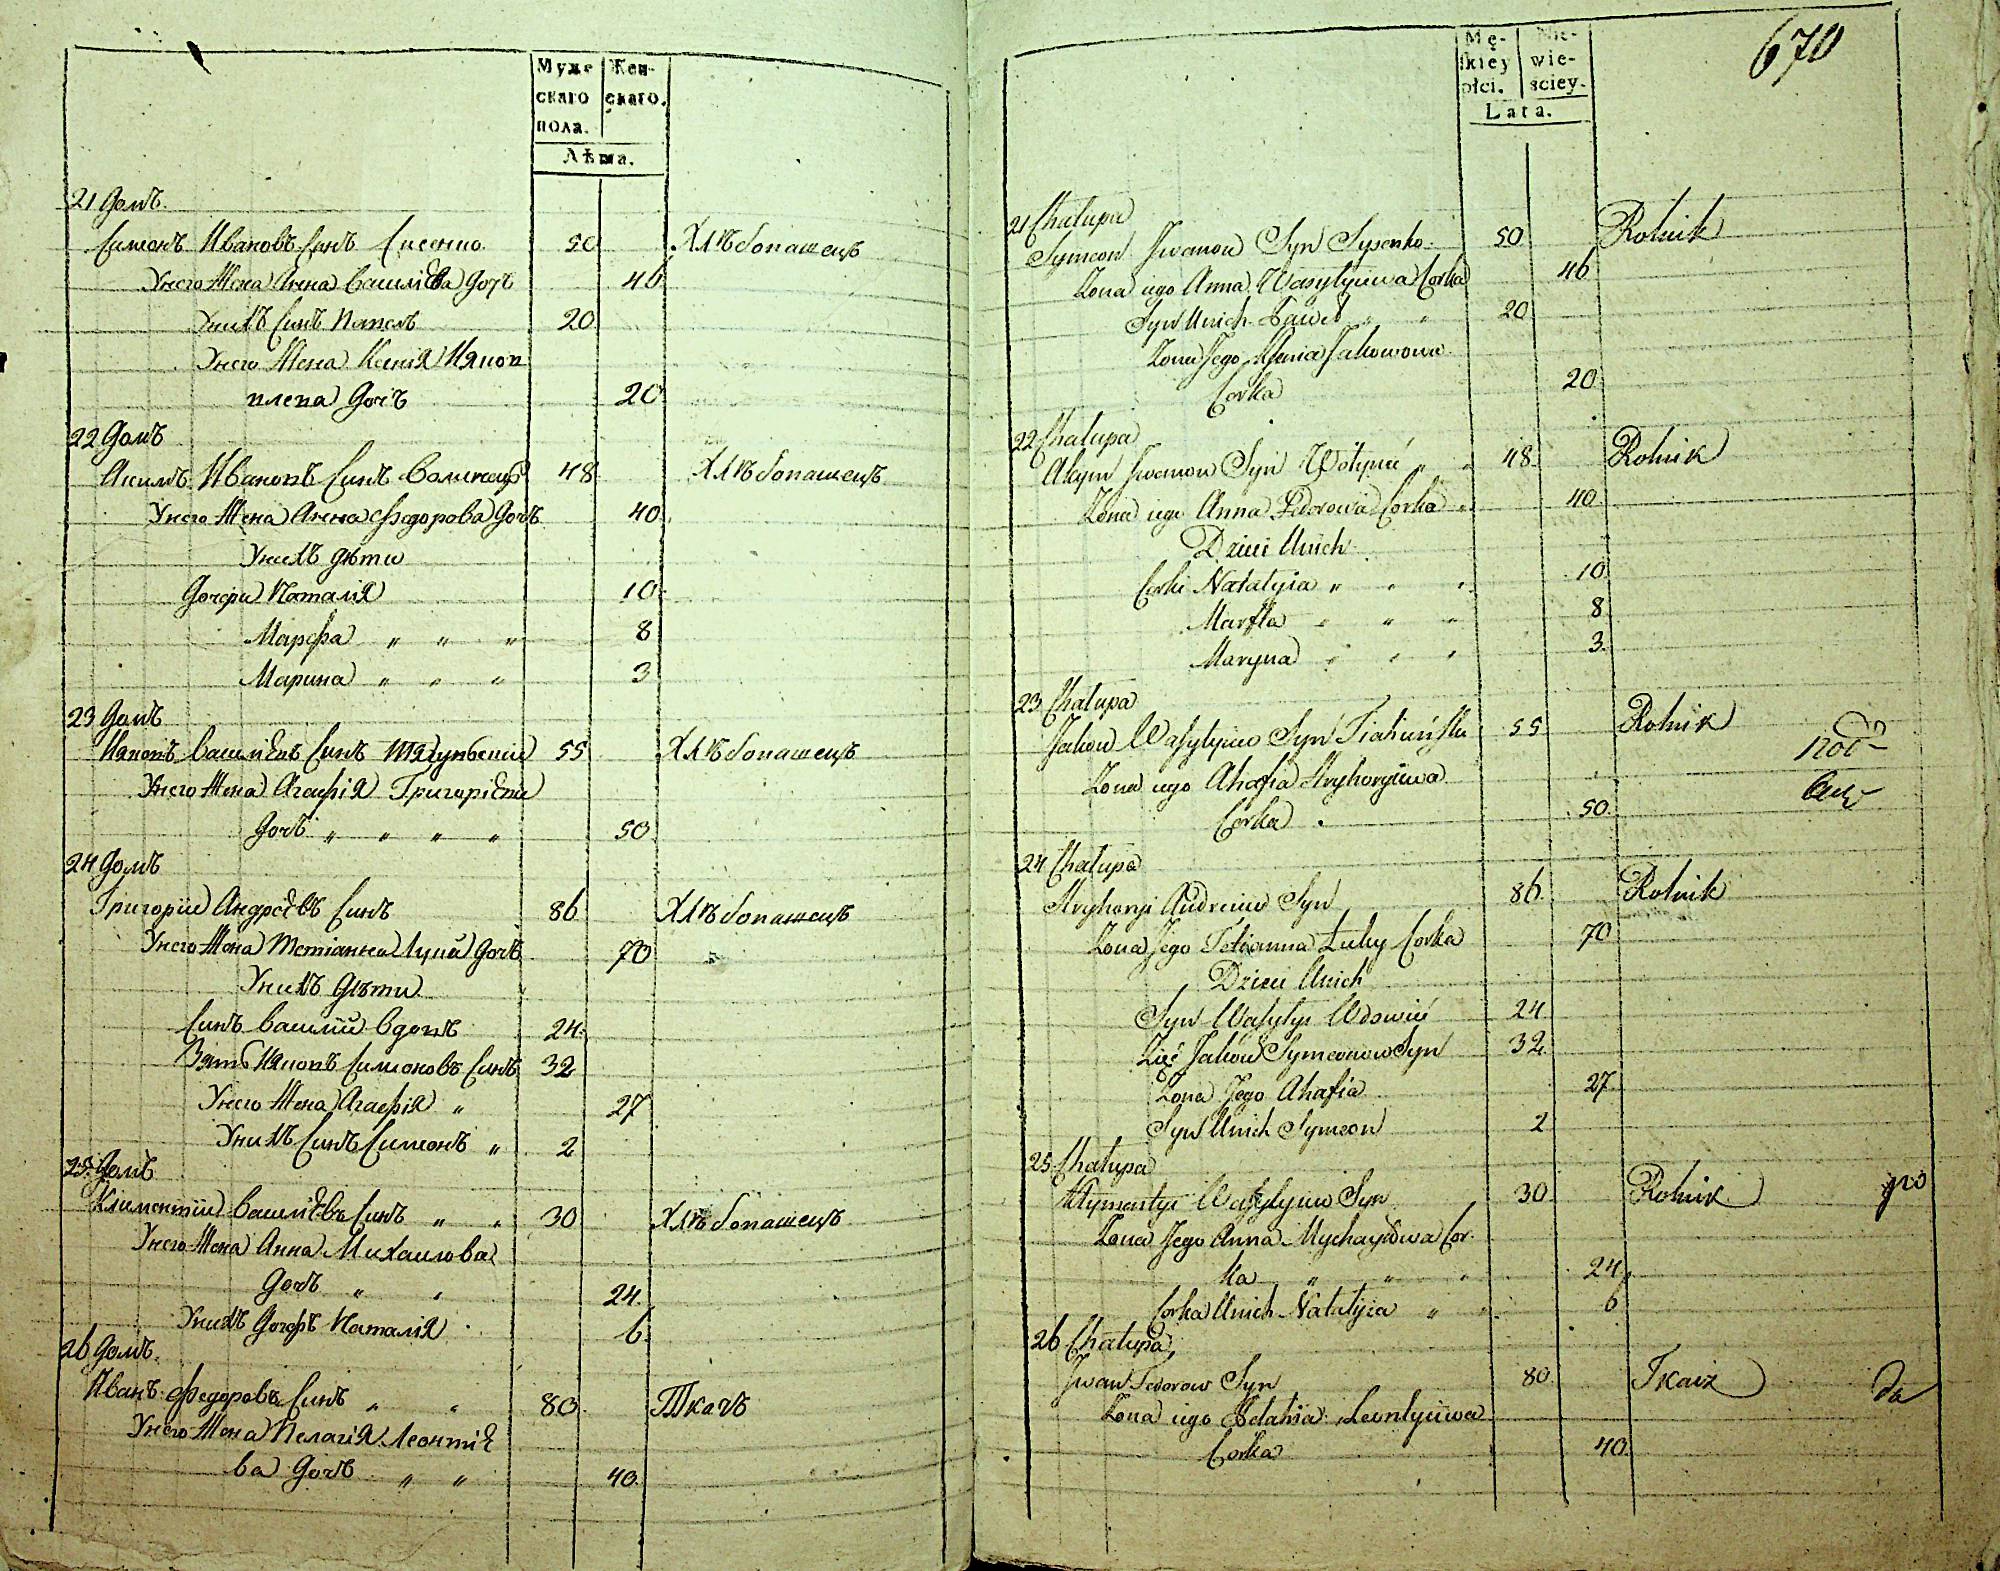 Муже
скаго
пола.
Жен-
скаго.
Лѣта.
21 Домъ
Симонъ Ивановъ Синъ Сисенко 50 Хлѣбопашецъ
Унего Жена Анна Василіева Дочъ 46
Унихъ Синъ Павелъ 20
Унего Жена Ксенія Яков
влева Дочъ 20
22 Домъ
Акимъ Ивановъ Синъ 48 Хлѣбопашецъ
Унего Жена Анна Федорова Дочъ 40
Унихъ дѣти
Дочери Наталія 10
Марфа „ „ „ 8
Марина „ „ „ 3
23 Домъ
Яковъ Василіевъ Синъ 55 Хлѣбопашецъ
Унего Жена Агафія Григоріева
Дочъ „ „ „ „ 50
24 Домъ
Григорій Андреевъ Синъ 86 Хлѣбопашецъ
Унего Жена Тетіанна Луки Дочъ 70
Унихъ Дѣти
Синъ Василій Вдовъ 24
Зять Яковъ Симоновъ Синъ 32
Унего Жена Агафія „ 27
Унихъ Синъ Симонъ „ 2
25 Домъ
Климентій Василіевъ Синъ „ „ 30 Хлѣбопашецъ
Унего Жена Анна Михаилова
Дочъ „ „ 24
Унихъ Дочеръ Наталія 6
26 Домъ
Иванъ Федоровъ Синъ „ „ 80 Ткачъ
Унего Жена Пелагія Леонтіе
ва Дочъ „ „ 40
670
Mę-
skiey
płci.
Nie-
wie-
ściey.
Lata.
21 Chałupa
Symeon Jwanow Syn Sysenko 50 Rolnik
Żona iego Anna Wasylyiwa Corka 46
Syn Unich Paweł „ „ 20
Żona Jego Xenia Jakowowa
Corka 20
22 Chałupa
Akym Jwanow Syn „ „ 48 Rolnik
Żona iego Anna Fedorowa Corka „ 40
Dzieci Unich
Corki Natalyia „ „ „ 10
Marfta „ „ „ 8
Maryna „ „ „ 3
23 Chałupa
Jakow Wasylyiew Syn 55 Rolnik
Żona iego Ahafia Hryhoryiwa
Corka 50
24 Chałupa
Hryhoryi Andreiew Syn 86 Rolnik
Żona Jego Tetianna Łuky Corka 70
Dzieci Unich
Syn Wasylyi Wdowiec 24
Zięć Jakow Symeonow Syn 32
Żona Jego Ahafia 27
Syn Unich Symeon 2
25 Chałupa
Klymentyi Wasylyiew Syn 30 Rolnik
Żona Jego Anna Mychayłowa Cor-
ka „ „ „ 24
Corka Unich Natalyia „ „ 6
26 Chałupa
Jwan Fedorow Syn 80 Tkacz
Żona iego Pelahia Leontyiewa
Corka 40